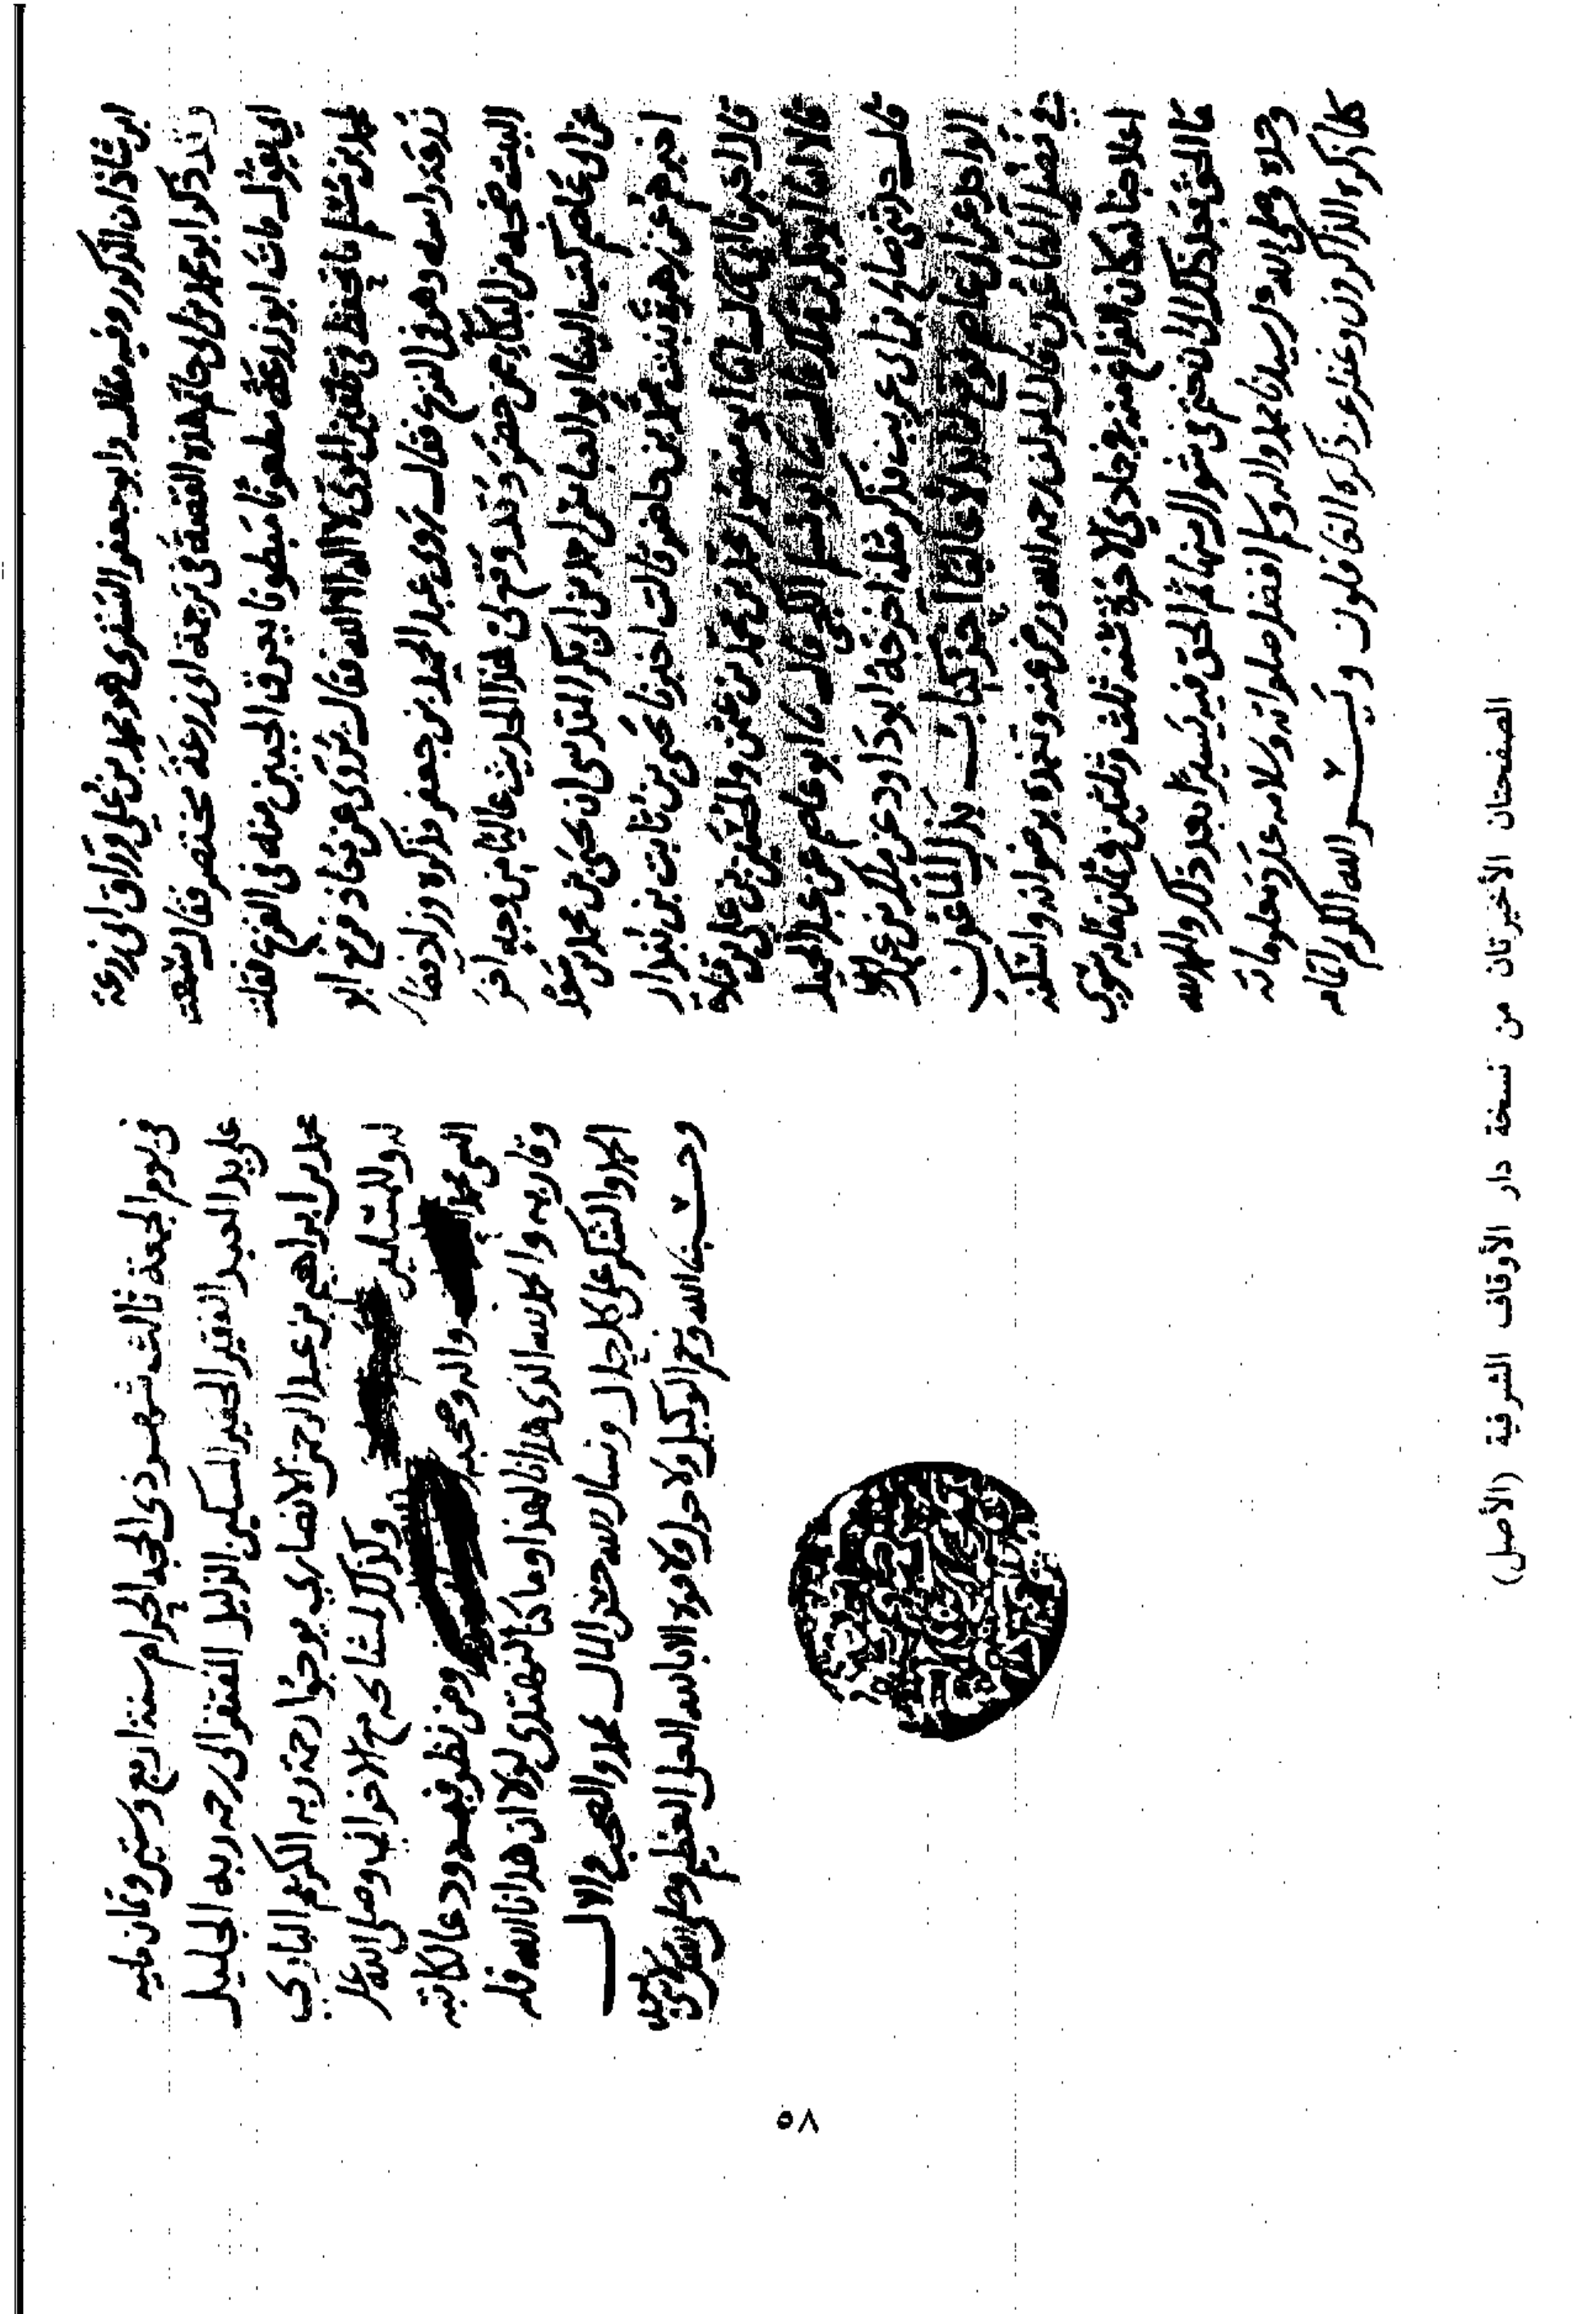 ابن شاذان المذكور وفيه مقال وابو جعفر التستري هو محمد بن علي وراق ابي زرعة
وقد ذكر ابو محمد بن ابي حاتم هذه القصة في ترجمة ابي زرعة مختصر فقال سمعت
ابي يقول مات ابو زرعة مطعونا مبطونا يعرق الجبين منه في النزع فقلت
لمحمد بن مسلم ما تحفظ في تلقين الموتى لا اله الا الله فقال يروى عن معاذ فرفع ابو
زرعة راسه وهو في النزع فقال روى عبد الحميد بن جعفر فذكره وزاد فصار
البيت ضجة من البكاء ممن حضر وقد وقع لي هذا الحديث عاليا من وجه اخر
عن ابي عاصم كتب الينا ابو العباس احمد بن ابي بكر المقدسي ان يحيى بن محمد بن سعد
اخبرهم عن زهرة بنت محمد بن حاضر قالت اخبرنا يحيى بن ثابت بن بندار
قال اخبرنا ابي قال انا ابو منصور محمد بن محمد بن عثمن والحسين بن علي بن
قالا انا ابو بكر بن مالك قال ثنا ابو مسلم الكجي قال ثنا ابو عاصم عن عبد الحميد
قال حدثني صالح بن ابي عريب فذكر مثله اخرجه ابو داود عن مالك بن عبد
الواحد عن ابي عاصم فوقع لنا بدلا عاليا اخر كتاب بذل الماعون
في فضل الطاعون قال المؤلف رحمه الله ورضي عنه وتغمده برضوانه واسكنه
اعلا جنانه كان الفراغ منه في جمادي الاخرة سنة ثلث وثلثين وثمان مائة سوى
ما الحق بعد ذلك الى ان ختم في شوال منها ثم الحق فيه يسيرا بعد ذلك والحمد لله
وحده وصلى الله على سيدنا محمد واله وسلم افضل صلواته وسلامه عدد معلوماته
كلما ذكره الذاكرون وغفل عن ذكره الغافلون ويسر الله الكريم اتمامه
في يوم الجمعة ثالث شهر ذي الحجة الحرام سنة اربع وستين وثمان مايه
على يد العبد الفقير الحقير المسكين الذليل المفتقر الى رحمه ربه الجليل
محمد بن ابراهيم بن عبد الرحمن الانصاري يوجوا رحمة ربه الكريم الباري
له وللمسلمين وكذلك لمشايخه مع الاخوان وصلى الله على
النبي محمد واله وصحبه ومن نظر فيه ودعا لكاتبه
وقاريه والحمد لله الذي هدانا لهذا وما كنا لنهتدي لولا ان هدانا الله فله
الحمد والشكر على كل حال ونسال الله حسن المال بمحمد والصحب والال
وحسبنا الله ونعم الوكيل ولا حول ولا قوة الا بالله العلي العظيم وصلى الله على
الصفحتان الأخيرتان من نسخة دار الأوقاف الشرفية (الأصل)
٥٨